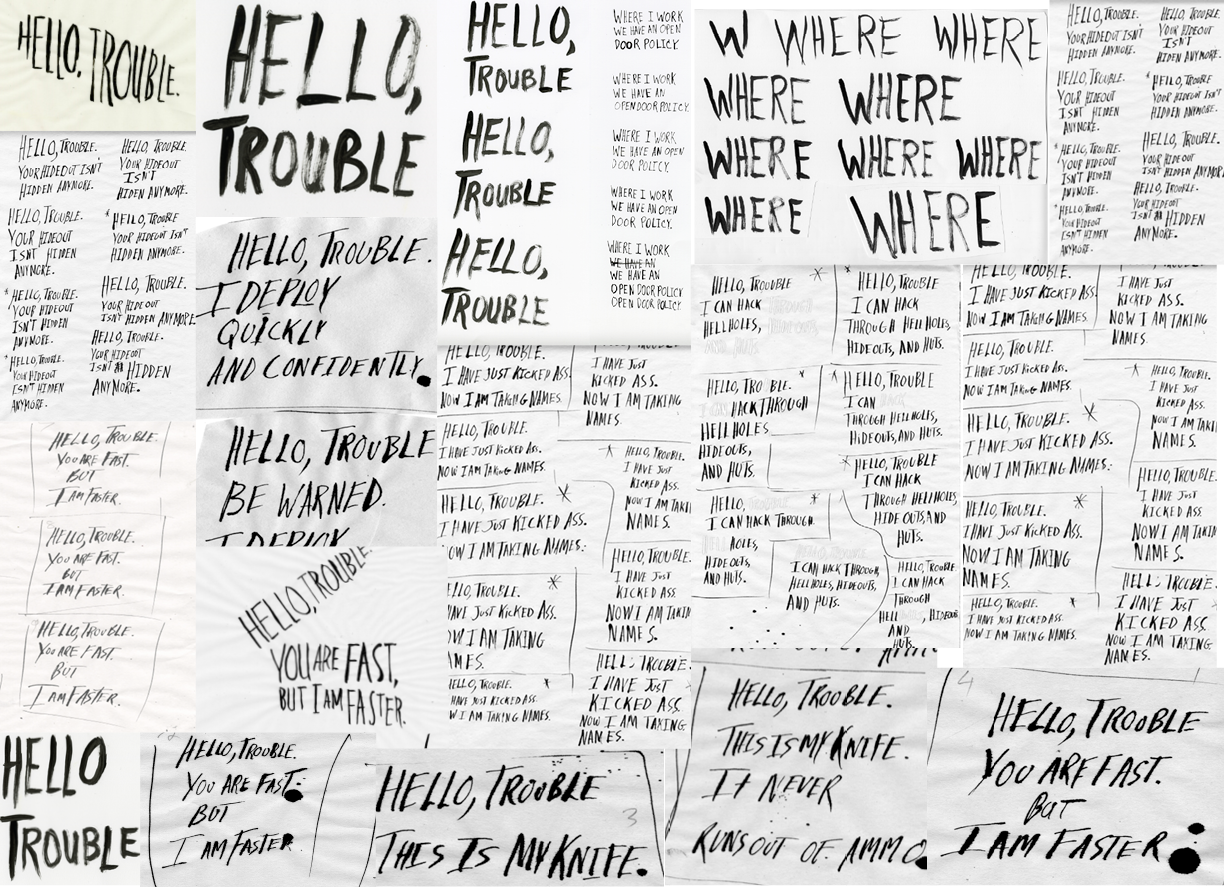 HELLO, TROUBLE.
HELLO, TROUBLE.
YOUR HIDEOUT ISN'T
HIDDEN ANYMORE.
HELLO, TROUBLE.
YOUR HIDEOUT
ISN'T
HIDEN ANYMORE.
HELLO, TROUBLE.
YOUR HIDEOUT
ISN'T HIDDEN
ANYMORE.
* HELLO, TROUBLE
YOUR HIDEOUT ISN'T
HIDDEN ANYMORE.
* HELLO, TROUBLE.
YOUR HIDEOUT
ISN'T HIDDEN
ANYMORE.
HELLO, TROUBLE.
YOUR HIDE OUT
ISN'T HIDDEN ANYMORE
* HELLO, TROUBLE.
YOUR HIDEOUT
ISN'T HIDDEN
ANYMORE.
HELLO, TROUBLE.
YOUR HIDEOUT
ISN'T HIDDEN
ANYMORE.
HELLO, TROUBLE.
YOU ARE FAST.
BUT
I AM FASTER.
HELLO, TROUBLE.
YOU ARE FAST.
BUT
I AM FASTER.
HELLO, TROUBLE.
YOU ARE FAST.
BUT
I AM FASTER.
HELLO
TROUBLE
HELLO,
TROUBLE
HELLO, TROUBLE.
I DEPLOY
QUICKLY
AND CONFIDENTLY.
HELLO, TROUBLE
BE WARNED.
I DEPLOY
HELLO, TROUBLE.
YOU ARE FAST,
BUT I AM FASTER.
HELLO, TROUBLE.
YOU ARE FAST.
BUT
I AM FASTER.
HELLO,
TROUBLE
HELLO,
TROUBLE
HELLO,
TROUBLE
WHERE I WORK
WE HAVE AN OPEN
DOOR POLICY.
WHERE I WORK
WE HAVE AN
OPEN DOOR POLICY.
WHERE I WORK
WE HAVE AN OPEN
DOOR POLICY.
WHERE I WORK
WE HAVE AN OPEN
DOOR POLICY.
WHERE I WORK
WE HAVE AN
WE HAVE AN
OPEN DOOR POLICY
OPEN DOOR POLICY.
HELLO, TROUBLE.
I HAVE JUST KICKED ASS.
NOW I AM TAKING NAMES.
I HAVE JUST
KICKED ASS.
NOW I AM TAKING
NAMES.
HELLO, TROUBLE.
I HAVE JUST KICKED ASS.
NOW I AM TAKING NAMES.
* HELLO, TROUBLE.
I HAVE JUST
KICKED ASS.
NOW I AM TAKIN
NAMES.
HELLO, TROUBLE. *
I HAVE JUST KICKED ASS.
NOW I AM TAKING NAMES.
HELLO, TROUBLE.
I HAVE JUST
KICKED ASS.
NOW I AM TAKIN
NAMES.
HELLO, TROUBLE. *
HAVE JUST KICKED ASS.
I AM TAKING
MES.
HELLO, TROUBLE. *
HAVE JUST KICKED ASS.
W I AM TAKING NAMES.
HELL TROUBLE.
I HAVE JUST
KICKED ASS
NOW I AM TAKING
NAMES.
W WHERE WHERE
WHERE WHERE
WHERE WHERE WHERE
WHERE WHERE
HELLO, TROUBLE.
YOUR HIDEOUT ISN'T
HIDDEN ANYMORE.
HELLO, TROUBLE.
YOUR HIDEOUT
ISN'T
HIDEN ANYMORE.
HELLO, TROUBLE.
YOUR HIDEOUT
ISN'T HIDDEN
ANYMORE.
* HELLO, TROUBLE
YOUR HIDEOUT ISN'T
HIDDEN ANYMORE.
* HELLO, TROUBLE.
YOUR HIDEOUT
ISN'T HIDDEN
ANYMORE.
HELLO, TROUBLE.
YOUR HIDE OUT
ISN'T HIDDEN ANYMORE
* HELLO, TROUBLE.
YOUR HIDEOUT
ISN'T HIDDEN
ANYMORE.
HELLO, TROUBLE.
YOUR HIDEOUT
ISN'T HIDDEN
ANYMORE.
HELLO, TROUBLE *
I CAN HACK
HELLHOLES,
* HELLO, TROUBLE
I CAN HACK
THROUGH HELLHOLES,
HIDEOUTS, AND HUTS.
HELLO, TRO BLE.
HACK THROUGH
HELLHOLES
HIDEOUTS,
AND HUTS.
* HELLO, TROUBLE
I CAN
THROUGH HELLHOLES,
HIDEOUTS, AND HUTS.
* HELLO, TROUBLE
I CAN HACK
THROUGH HELLHOLES,
HIDE OUTS, AND
HUTS.
HELLO,
I CAN HACK THROUGH
HOLES,
HIDE OUTS,
AND HUTS.
I CAN HACK THROUGH,
HELLHOLES, HIDEOUTS,
AND HUTS.
HELLO, TROUBLE
I CAN HACK
THROUGH
HELL , HIDEOUTS
AND
HUTS.
HELLO, TROUBLE.
I HAVE JUST KICKED ASS.
NOW I AM TAKING NAMES.
I HAVE JUST
KICKED ASS.
NOW I AM TAKING
NAMES.
HELLO, TROUBLE.
I HAVE JUST KICKED ASS.
NOW I AM TAKING NAMES.
* HELLO, TROUBLE.
I HAVE JUST
KICKED ASS.
NOW I AM TAKIN
NAMES.
HELLO, TROUBLE. *
I HAVE JUST KICKED ASS.
NOW I AM TAKING NAMES.
HELLO, TROUBLE.
I HAVE JUST
KICKED ASS.
NOW I AM TAKIN
NAMES.
HELLO, TROUBLE. *
I HAVE JUST KICKED ASS.
NOW I AM TAKING
NAMES.
HELLO, TROUBLE. *
I HAVE JUST KICKED ASS.
NOW I AM TAKING NAMES.
HELL TROUBLE.
I HAVE JUST
KICKED ASS
NOW I AM TAKING
NAMES.
HELLO, TROUBLE
3
THIS IS MY KNIFE.
HELLO, TROUBLE.
THIS IS MY KNIFE.
IT NEVER
RUNS OUT OF AMMO
4
HELLO, TROUBLE
YOU ARE FAST.
BUT
I AM FASTER.